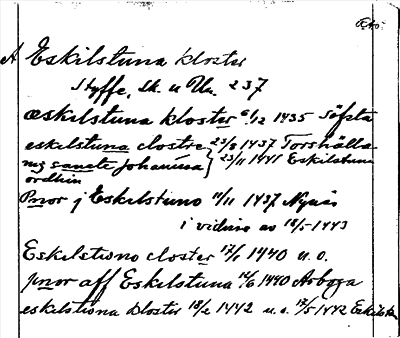 A Eskilstuna kloster
Styffe, Sk. u Un. 237
œskilstuna kloster 6/12 1435 Söfsta
eskilstuna clostre 23/8 1437 Torshälla
meꝫ sancte Johannisa 23/11 1441 Eskilstuna
ordhin
Prior j Eskilstuno 11/11 1437 Nynäs
i vidisse av 18/5 1443
Eskilstwno closter 17/1 1440 u.o.
prior aff Eskilstuna 12/6 1440 Arboga
eskilstuna kloster 18/2 1442 u.o. 17/5 1442 Eskilst.